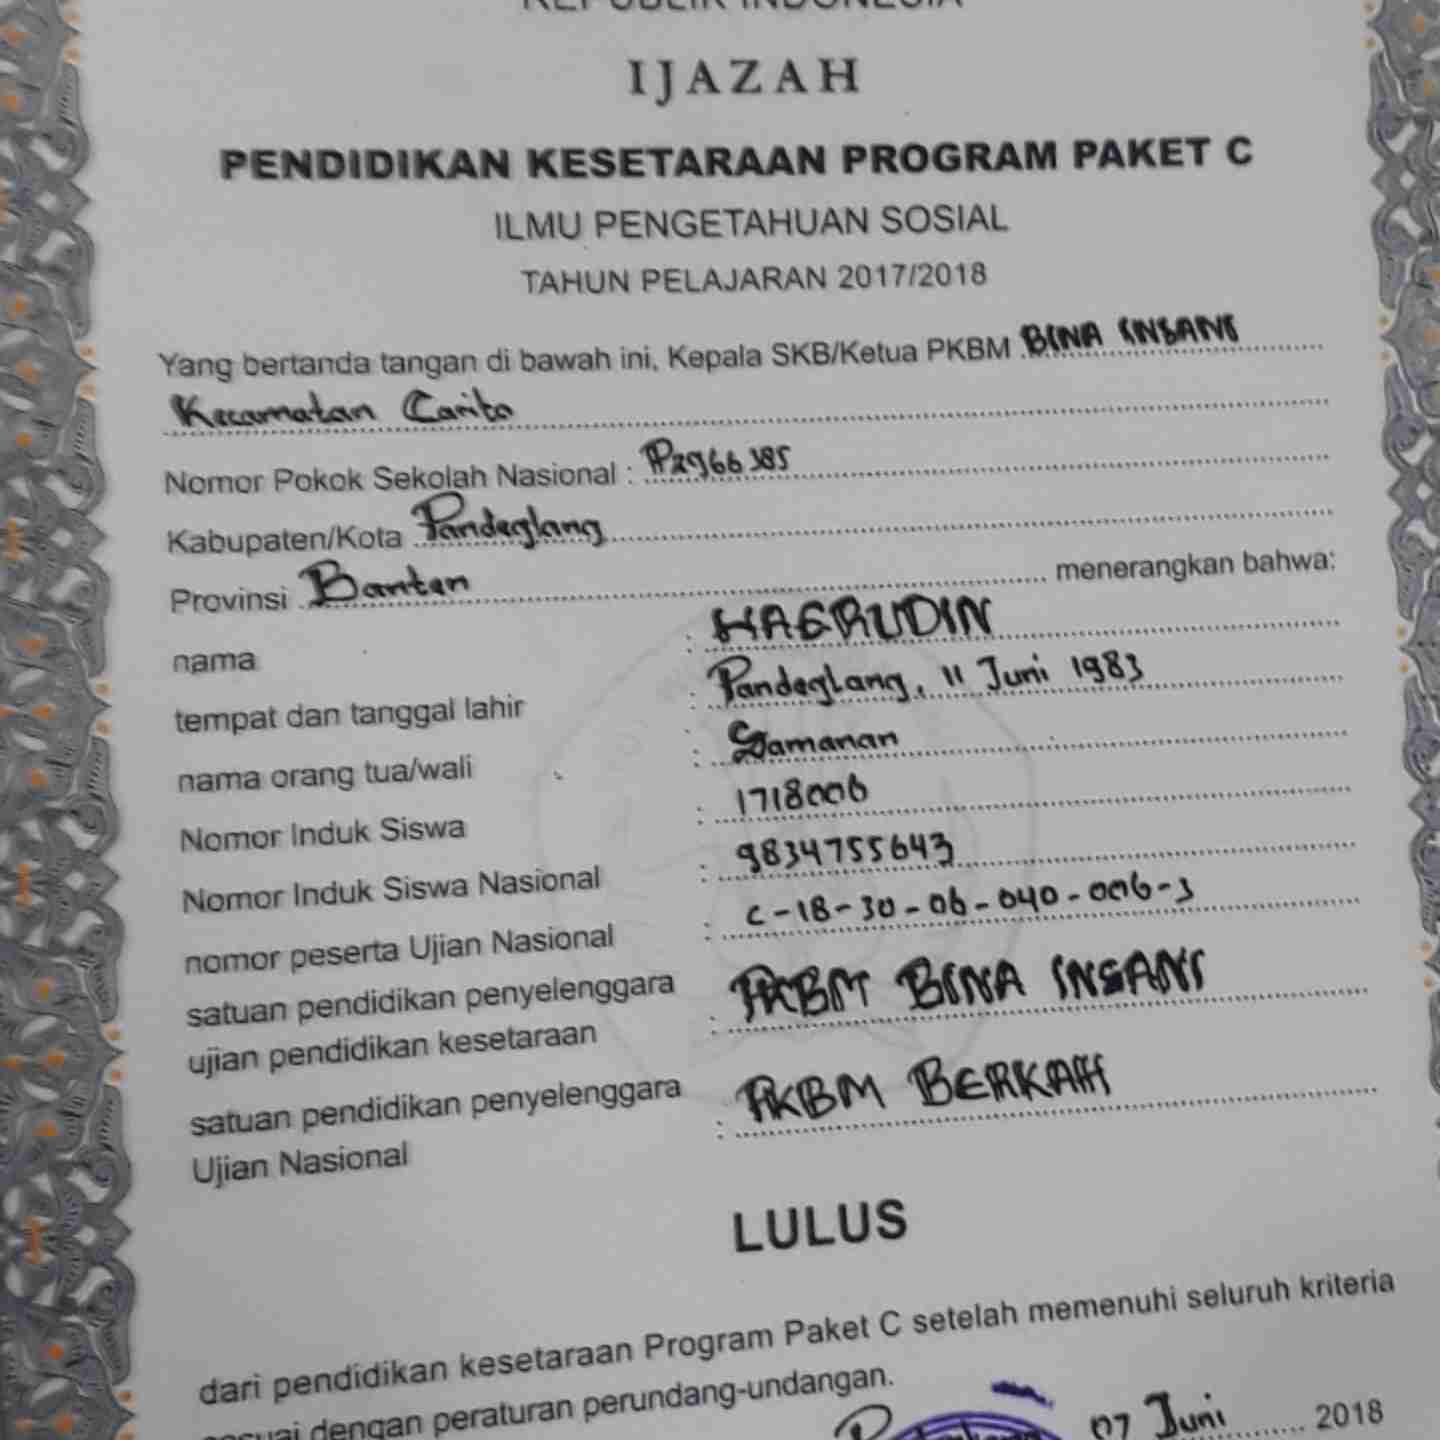 REPUBLIK INDONESIA
IJAZAH
PENDIDIKAN KESETARAAN PROGRAM PAKET C
ILMU PENGETAHUAN SOSIAL
TAHUN PELAJARAN 2017/2018
Yang bertanda tangan di bawah ini, Kepala SKB/Ketua PKBM BINA INSANI
Kecamatan Carita
Nomor Pokok Sekolah Nasional : P2966385
Kabupaten/Kota Pandeglang
Provinsi Banten menerangkan bahwa:
nama : HAERUDIN
tempat dan tanggal lahir : Pandeglang, 11 Juni 1983
nama orang tua/wali : Samanan
Nomor Induk Siswa : 1718006
Nomor Induk Siswa Nasional : 9834755643
nomor peserta Ujian Nasional : C-18-30-06-040-006-3
satuan pendidikan penyelenggara
ujian pendidikan kesetaraan : PKBM BINA INSANI
satuan pendidikan penyelenggara
Ujian Nasional : PKBM BERKAH
LULUS
dari pendidikan kesetaraan Program Paket C setelah memenuhi seluruh kriteria
sesuai dengan peraturan perundang-undangan.
07 Juni 2018